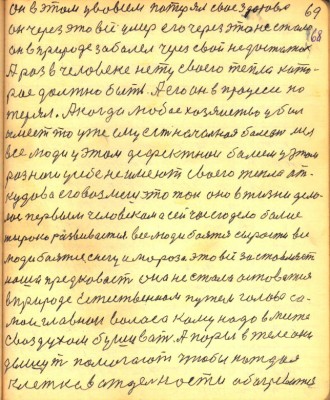 он в этом у всем потерял свое здоровье 69
он через это всё умер его через это не стало 68
он в природе заболел через свой недостаток
А раз в человеке нету своего тепла кото-
рое должно быть. А его он в процессе по
терял. А когда любое хозяйство убыл
имеет то уже существенная болезнь
все люди у этом дефектной болеем у этом
разного у себе не имеют своего тепла от-
кудова его возьмеш это ток оно в жизни дела-
лось первым человекам а сейчас это дело более
широко развивается все люди боятся сырости все
люди боятся снегу и мороза это всё заставляет
наши предковать она не стала основатся
в природе Естественном путем голова са-
мом главном волоса кому надо вместе
с воздухом бушиват. А поры в теле они
дышут помогают чтобы каждая
клетка в отдельности обогревается